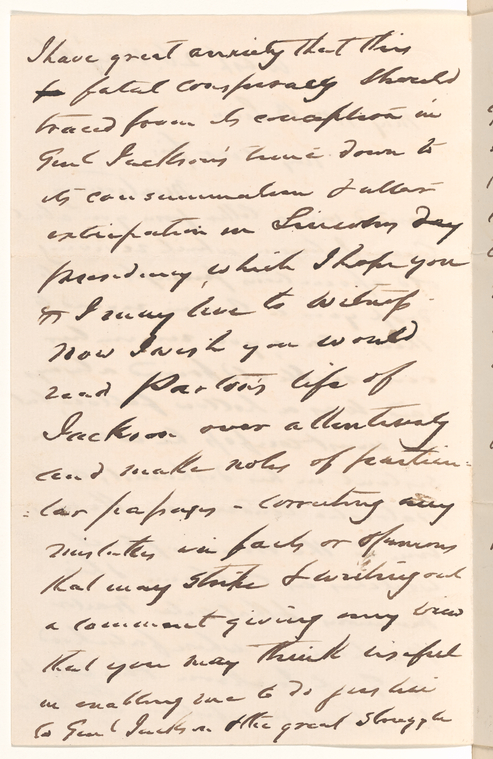 I have great anxiety that this
fatal conspiracy should
traced from its conception in
Genl Jackson's time down to
its consummation & utter
extirpation in Lincolns
presidency, which I hope you
& I may live to witness.
Now I wish you would
read Parton's life of
Jackson over attentively
and make notes of particu-
:lar passages - correcting any
mistakes in facts or opinions
that may strike & writing out
a comment giving any view
that you may think useful
in enabling me to do justice
to Genl Jackson & the great struggle